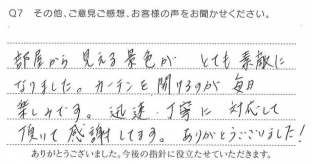 Q7 その他、ご意見ご感想、お客様の声をお聞かせください。
部屋から 見える景色が とても 素敵に
なりました。カーテンを 開けるのが 毎日
楽しみです。 迅速・丁寧に 対応して
頂いて 感謝してます。 ありがとうございました!
ありがとうございました。今後の指針に役立たせていただきます。